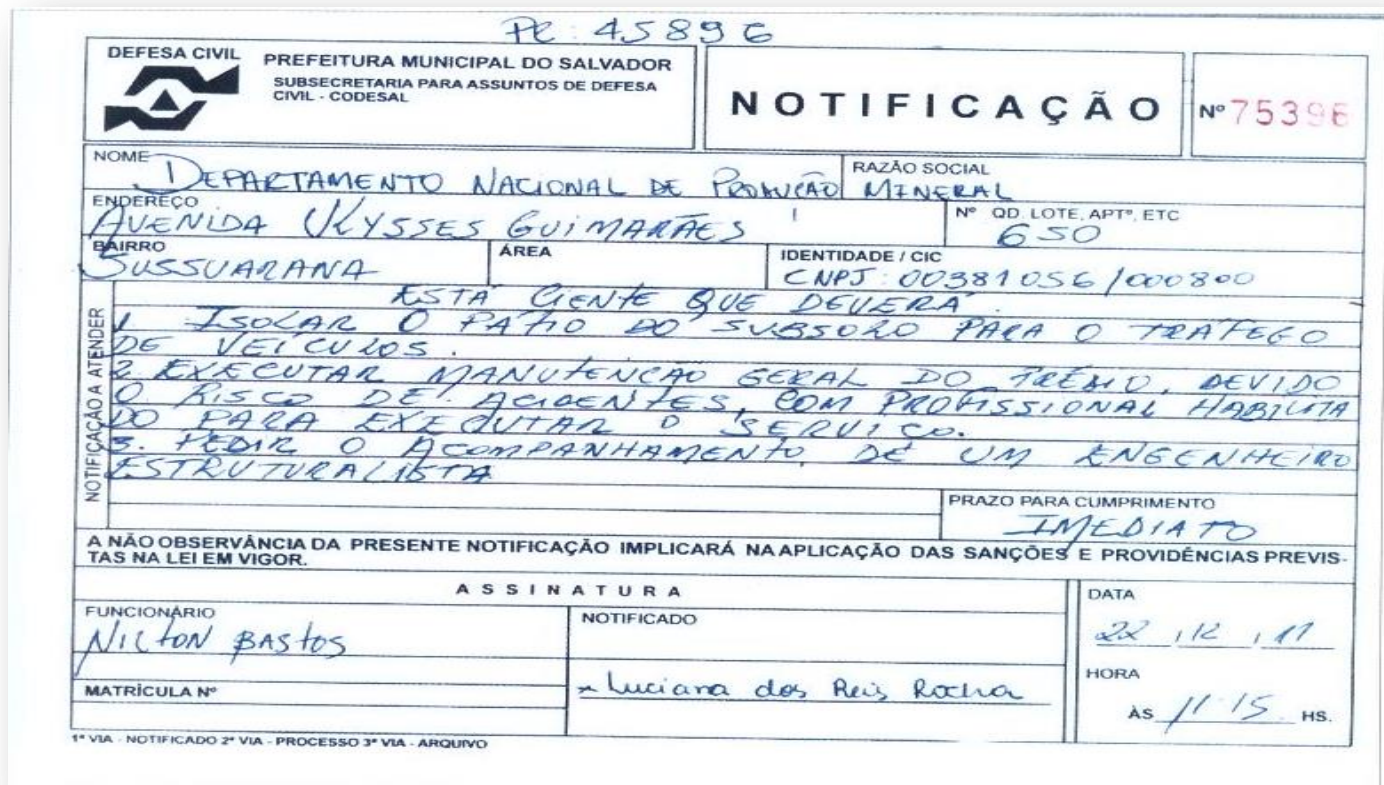 PC: 45896
DEFESA CIVIL
PREFEITURA MUNICIPAL DO SALVADOR
SUBSECRETARIA PARA ASSUNTOS DE DEFESA
CIVIL - CODESAL
NOTIFICAÇÃO
Nº 75396
NOME
RAZÃO SOCIAL
DEPARTAMENTO NACIONAL DE PRODUÇÃO MINERAL
ENDEREÇO
Nº QD. LOTE, APTº, ETC
AVENIDA ULYSSES GUIMARÃES
650
BAIRRO
ÁREA
IDENTIDADE / CIC
SUSSUARANA
CNPJ: 00381056/000800
NOTIFICAÇÃO A ATENDER
ESTÁ CIENTE QUE DEVERÁ
1 ISOLAR O PATIO DO SUBSOLO PARA O TRAFEGO
DE VEÍCULOS.
2 EXECUTAR MANUTENÇÃO GERAL DO PRÉDIO, DEVIDO
O RISCO DE ACIDENTES, COM PROFISSIONAL HABILITA
DO PARA EXECUTAR O SERVIÇO.
3. PEDIR O ACOMPANHAMENTO DE UM ENGENHEIRO
ESTRUTURALISTA
PRAZO PARA CUMPRIMENTO
IMEDIATO
A NÃO OBSERVÂNCIA DA PRESENTE NOTIFICAÇÃO IMPLICARÁ NA APLICAÇÃO DAS SANÇÕES E PROVIDÊNCIAS PREVIS-
TAS NA LEI EM VIGOR.
ASSINATURA
FUNCIONÁRIO
NILTON BASTOS
MATRÍCULA Nº
NOTIFICADO
Luciana dos Reis Rocha
DATA
22 / 12 / 11
HORA
ÀS 11:15 HS.
1ª VIA - NOTIFICADO 2ª VIA - PROCESSO 3ª VIA - ARQUIVO